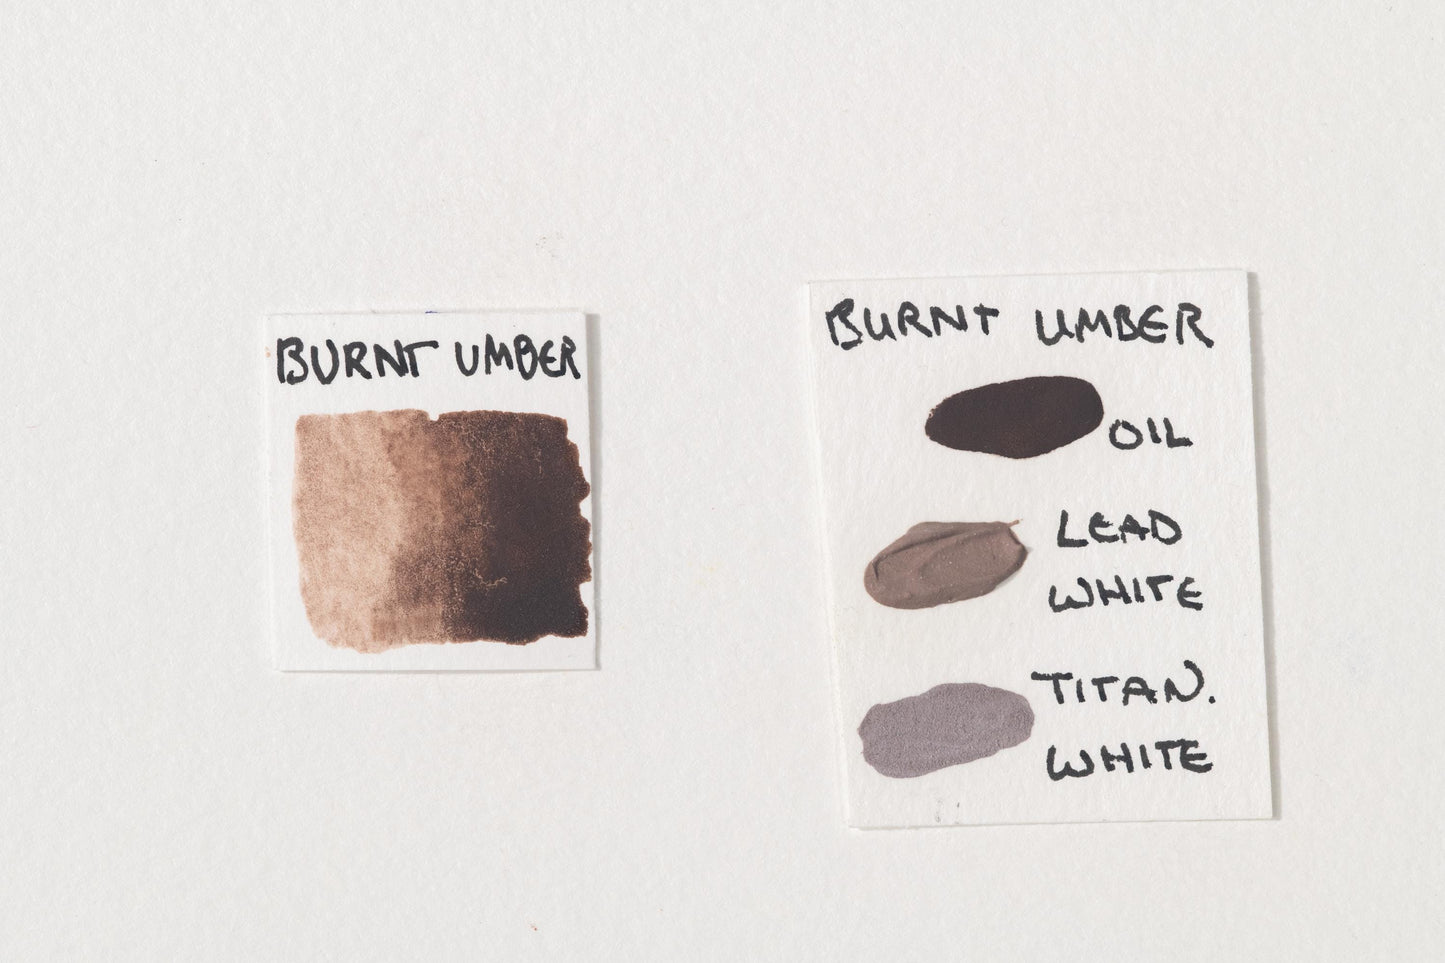 BURNT UMBER
BURNT UMBER
OIL
LEAD
WHITE
TITAN.
WHITE